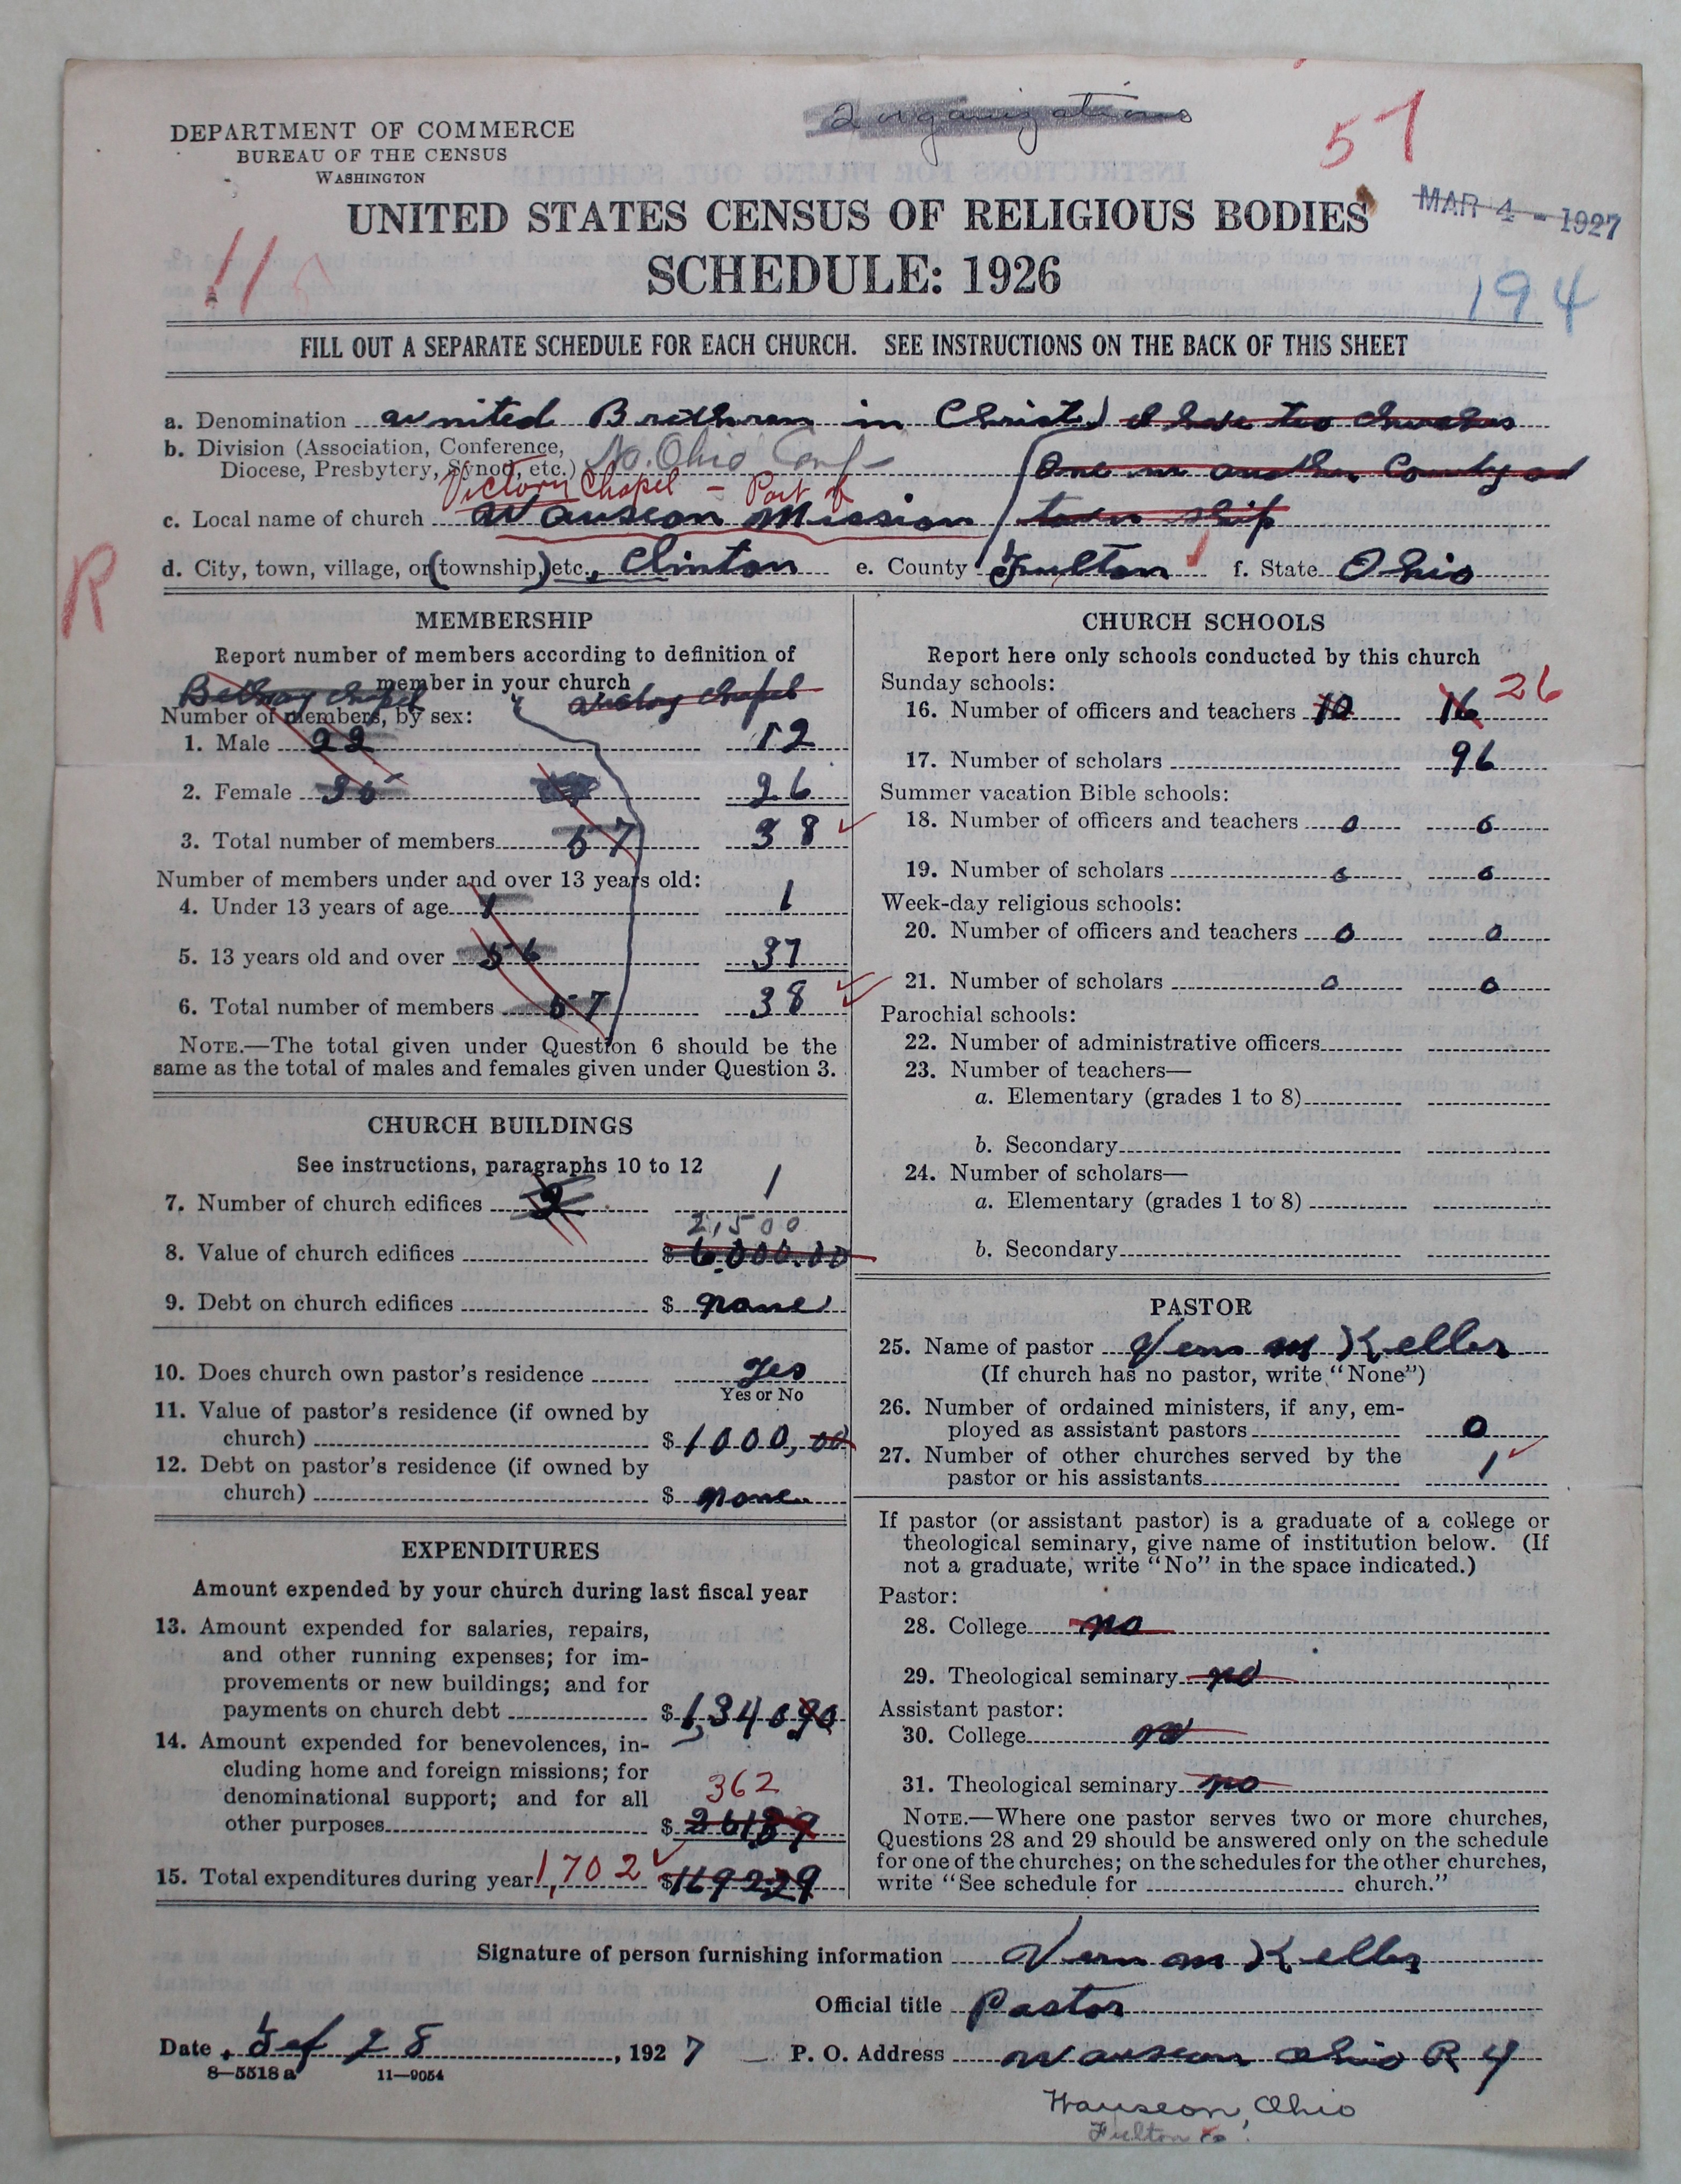 2 organizations
57
DEPARTMENT OF COMMERCE
BUREAU OF THE CENSUS
WASHINGTON
MAR 4 - 1927
UNITED STATES CENSUS OF RELIGIOUS BODIES
11
SCHEDULE: 1926
194
FILL OUT A SEPARATE SCHEDULE FOR EACH CHURCH. SEE INSTRUCTIONS ON THE BACK OF THIS SHEET
a. Denomination united Brethren in Christ) I have two churches
b. Division (Association, Conference,
Diocese, Presbytery, Synod, etc.) No. Ohio Conf (One in another County ad
Victory Chapel - Part of
c. Local name of church Wauseon Mission town ship
d. City, town, village, or (township) etc., Clinton e. County Fulton f. State Ohio
R
MEMBERSHIP
Report number of members according to definition of
member in your church
Bethany chapel victory chapel
Number of members, by sex:
1. Male 22 12
2. Female 35 26
3. Total number of members 57 38
Number of members under and over 13 years old:
4. Under 13 years of age 1 1
5. 13 years old and over 56 37
6. Total number of members 57 38
NOTE.—The total given under Question 6 should be the
same as the total of males and females given under Question 3.
CHURCH BUILDINGS
See instructions, paragraphs 10 to 12
7. Number of church edifices 2 1
2,500
8. Value of church edifices $ 6,000.00
9. Debt on church edifices $ none
10. Does church own pastor's residence Yes
Yes or No
11. Value of pastor's residence (if owned by
church) $ 1000,00
12. Debt on pastor's residence (if owned by
church) $ none
EXPENDITURES
Amount expended by your church during last fiscal year
13. Amount expended for salaries, repairs,
and other running expenses; for im-
provements or new buildings; and for
payments on church debt $ 1,34090
14. Amount expended for benevolences, in-
cluding home and foreign missions; for
denominational support; and for all
362
other purposes $ 36189
15. Total expenditures during year 1,702 $ 169229
CHURCH SCHOOLS
Report here only schools conducted by this church
Sunday schools:
16. Number of officers and teachers 10 16 26
17. Number of scholars 96
Summer vacation Bible schools:
18. Number of officers and teachers 0 0
19. Number of scholars 0 0
Week-day religious schools:
20. Number of officers and teachers 0 0
21. Number of scholars 0 0
Parochial schools:
22. Number of administrative officers
23. Number of teachers—
a. Elementary (grades 1 to 8)
b. Secondary
24. Number of scholars—
a. Elementary (grades 1 to 8)
b. Secondary
PASTOR
25. Name of pastor Vern M Keller
(If church has no pastor, write "None")
26. Number of ordained ministers, if any, em-
ployed as assistant pastors 0
27. Number of other churches served by the
pastor or his assistants 1
If pastor (or assistant pastor) is a graduate of a college or
theological seminary, give name of institution below. (If
not a graduate, write "No" in the space indicated.)
Pastor:
28. College no
29. Theological seminary no
Assistant pastor:
30. College no
31. Theological seminary no
NOTE.—Where one pastor serves two or more churches,
Questions 28 and 29 should be answered only on the schedule
for one of the churches; on the schedules for the other churches,
write "See schedule for church."
Signature of person furnishing information Vern M Keller
Official title Pastor
Date Fef 28, 1927 P. O. Address Wauseon Ohio R 4
8—5518 a 11—9054
Wauseon, Ohio
Fulton Co.